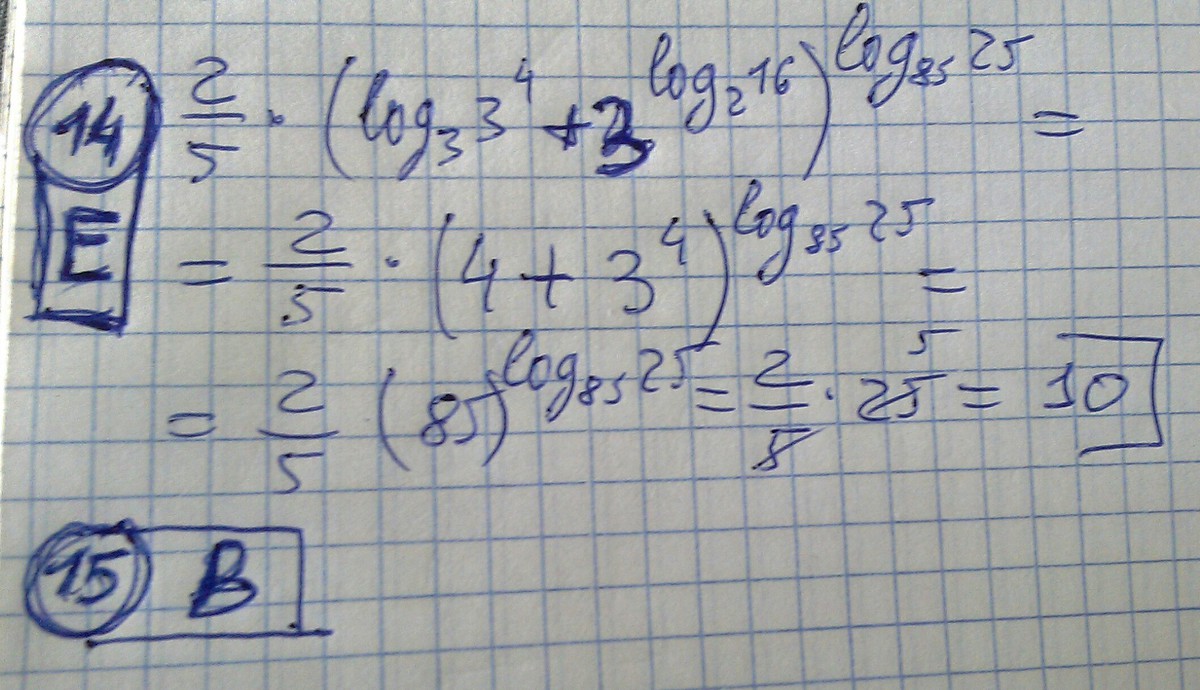 14 2/5 · (log₃ 3⁴ + 3^(log₂ 16))^(log₈₅ 25) =
E = 2/5 · (4 + 3⁴)^(log₈₅ 25) =
= 2/5 (85)^(log₈₅ 25) = 2/5 · 25 5 = 10
15 B